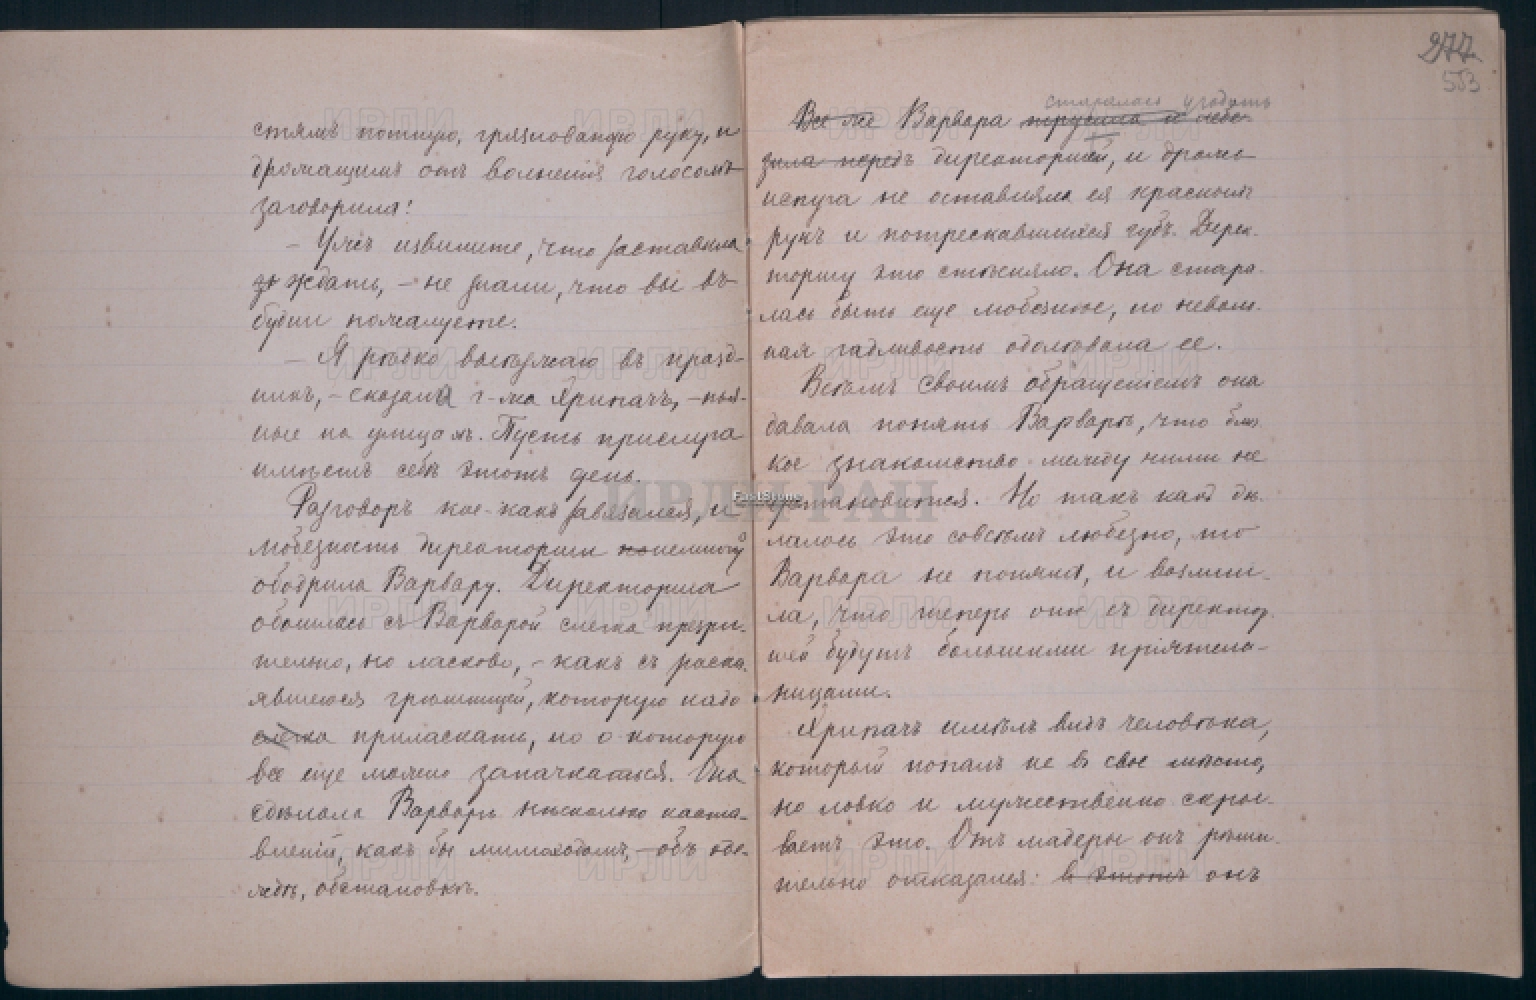 стямъ потную, грязноватую руку, и
дрожащимъ отъ волненія голосомъ
заговорила:
— Ужъ извините, что заставила
ждать, — не знали, что вы въ
будни пожалуете.
— Я рѣдко выѣзжаю въ празд-
никъ, — сказала г-жа Хрипачъ, — пья-
ные на улицахъ. Пусть прислуга
имѣетъ себѣ этотъ день.
Разговоръ кое-какъ завязался, и
любезность директорши понемногу
ободрила Варвару. Директорша
обошлась съ Варварой слегка презри-
тельно, но ласково, — какъ съ раска-
явшеюся грѣшницей, которую надо
слегка приласкать, но о которую
все еще можно запачкаться. Она
сдѣлала Варварѣ нѣсколько настав-
леній, какъ бы мимоходомъ, — объ оде-
ждѣ, обстановкѣ.
277
553
старалась угодить
Все же Варвара трусила и лебе-
зила передъ директоршей, и дрожь
испуга не оставляла ея красныхъ
рукъ и потрескавшихся губъ. Дирек-
торшу это стѣсняло. Она стара-
лась быть еще любезнѣе, но неволь-
ная гадливость одолѣвала ее.
Всѣмъ своимъ обращеніемъ она
давала понять Варварѣ, что близ-
кое знакомство между ними не
установится. Но такъ какъ дѣ-
лалось это совсѣмъ любезно, то
Варвара не поняла, и возмни-
ла, что теперь они съ директор-
шей будутъ большими пріятель-
ницами.
Хрипачъ имѣлъ видъ человѣка,
который попалъ не въ свое мѣсто,
но ловко и мужественно скры-
ваетъ это. Отъ мадеры онъ рѣши-
тельно отказался: в этотъ онъ
ИРЛИ РАН
FastStone